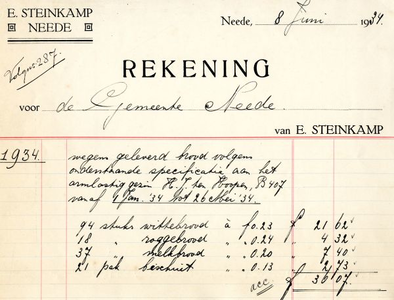 E. STEINKAMP
NEEDE
Neede, 8 Juni 1934.
Volgno 287.
REKENING
voor de Gemeente Neede.
van E. STEINKAMP
1934. wegens geleverd brood volgens
onderstaande specificatie aan het
armlastig gezin H. J. ten Hoopen, B407
vanaf 4 Jan. '34 tot 26 Mei '34.
94 stuks wittebrood à f 0.23 f 21 62
18 " roggebrood " 0.24 " 4 32
37 " melkbrood " 0.20 " 7 40
21 pak beschuit " 0.13 " 2 73
acc f 36 07